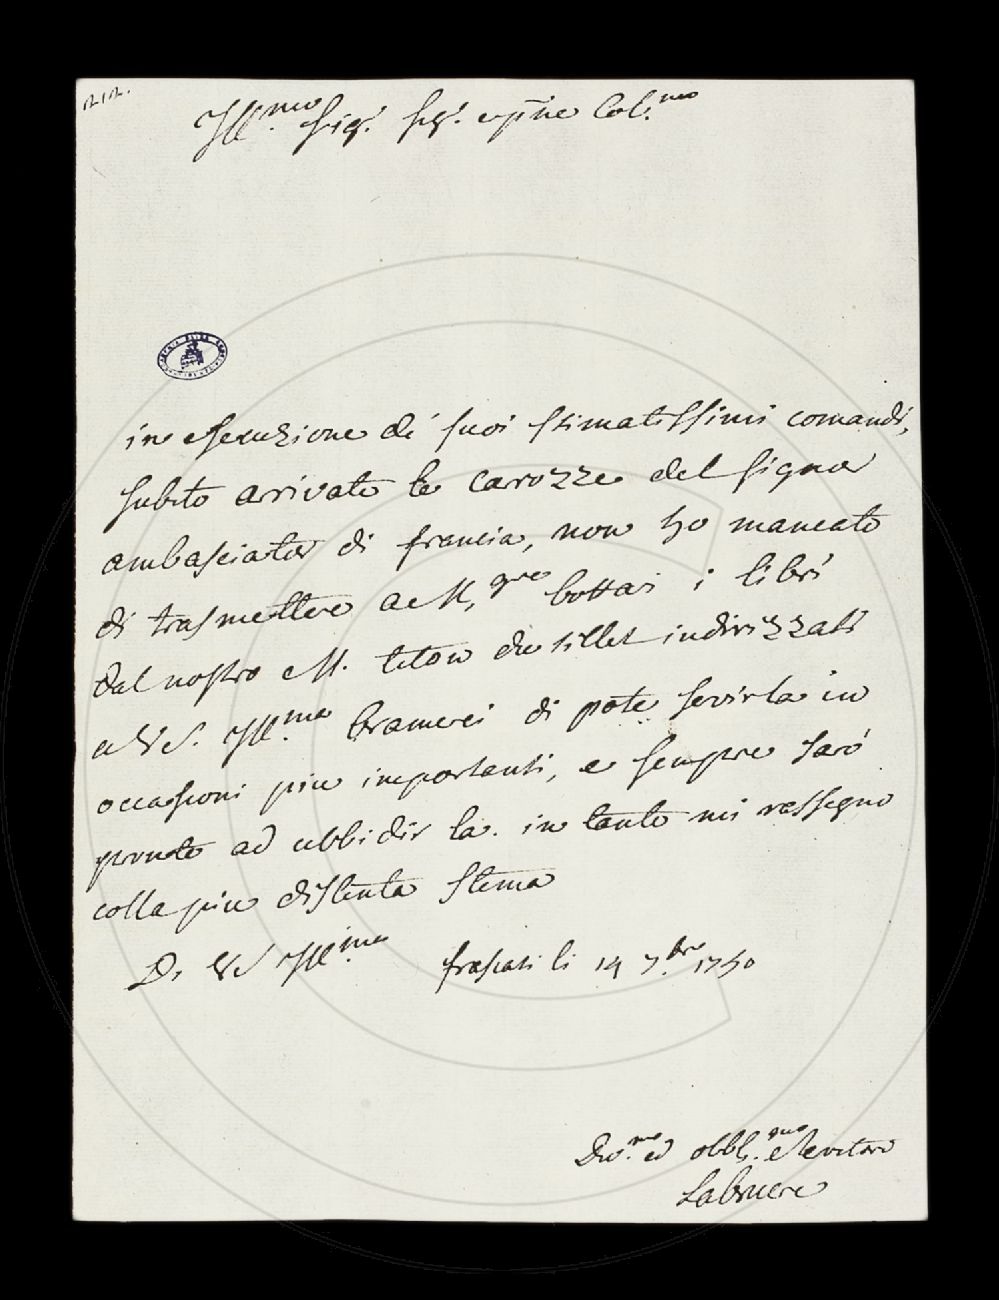 212.
Ill.mo Sig.r Sig.r e pne Col.mo
in esecuzione di suoi stimatissimi comandi,
subito arrivato le carozze del signor
ambasciator di francia, non ho mancato
di trasmettere a M.gre bottari i libri
dal nostro M. titon du tillet indirizzati
a V.S. Ill.ma bramerei di pote servirla in
occasioni piu importanti, e sempre sarò
pronto ad ubbidir la. in tanto mi rassegno
colla piu distinta stima
D. VS Ill.ma frascati li 14 7.bre 1750
Div.mo ed obbl.mo servitore
Labruere